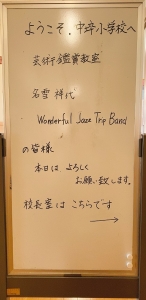 ようこそ、中卒小学校へ
芸術鑑賞教室
名雪祥代
Wonderful Jazz Trip Band
の皆様
本日はよろしく
お願い致します。
校長室はこちらです
→